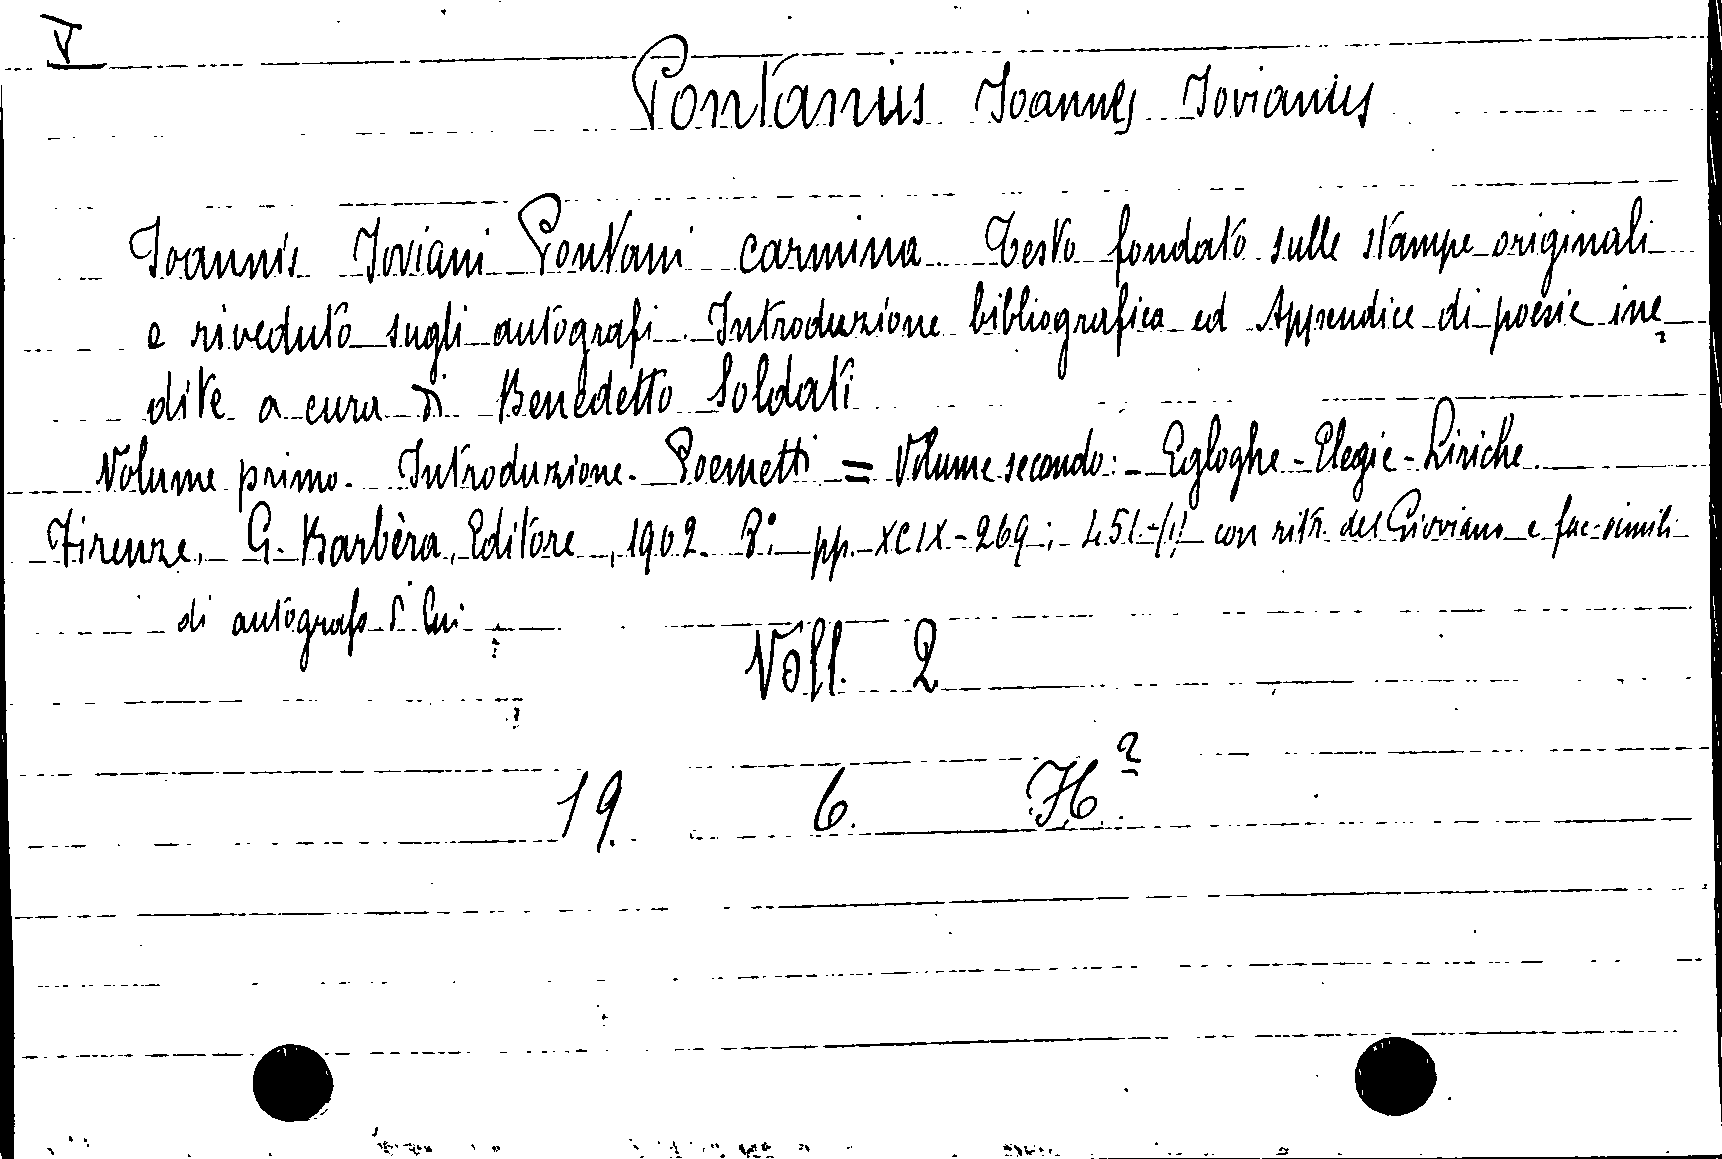 V
Pontanus Joannes Jovianus
Joannis Joviani Pontani carmina. Testo fondato sulle stampe originali
e riveduto sugli autografi. Introduzione bibliografica ed Appendice di poesie ine
dite a cura di Benedetto Soldati
Volume primo. Introduzione. Poemetti = Volume secondo: - Egloghe - Elegie - Liriche
Firenze, G. Barbèra, Editore, 1902. 8° pp. XCIX-269; 451 con ritr. del Gioviano e fac-simili
di autografo di lui
Voll. 2
19. 6. H²